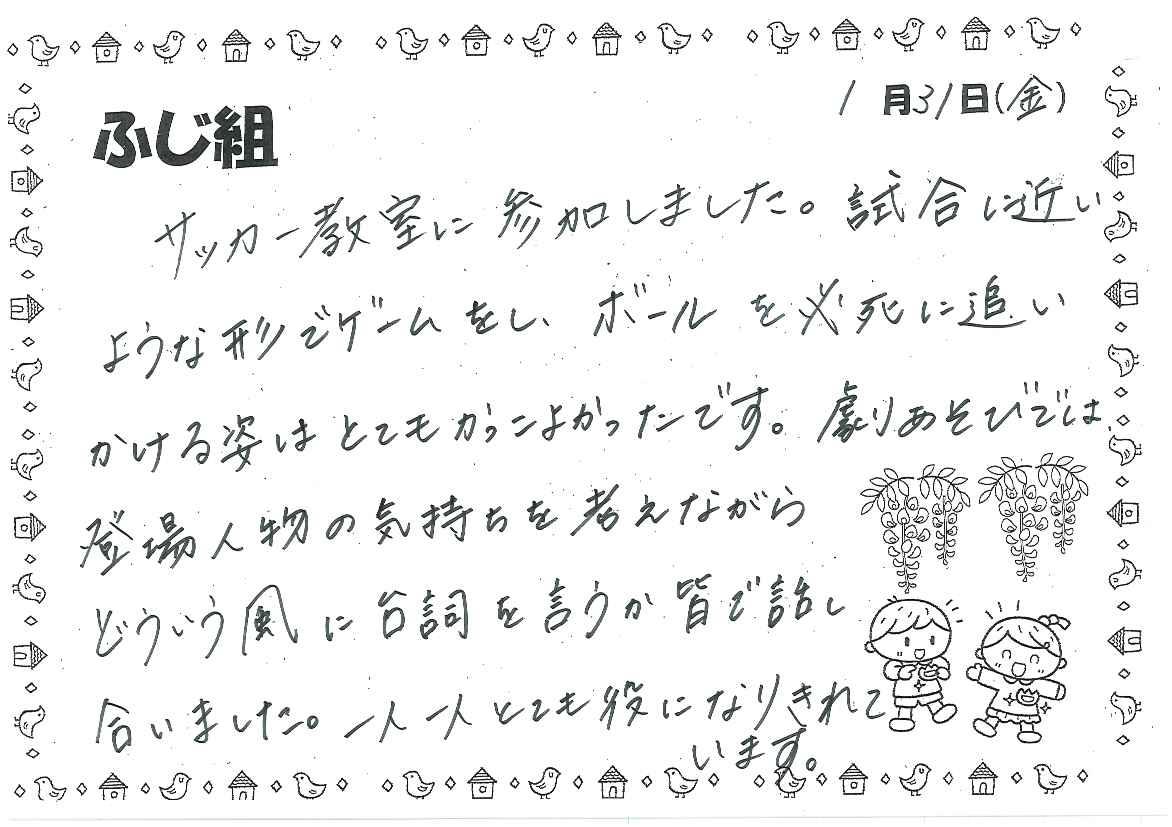 1月31日(金)
ふじ組
サッカー教室に参加しました。試合に近い
ような形でゲームをし、ボールを必死に追い
かける姿はとてもかっこよかったです。劇あそびでは、
登場人物の気持ちを考えながら
どういう風に台詞を言うか皆で話し
合いました。一人一人とても役になりきれて
います。